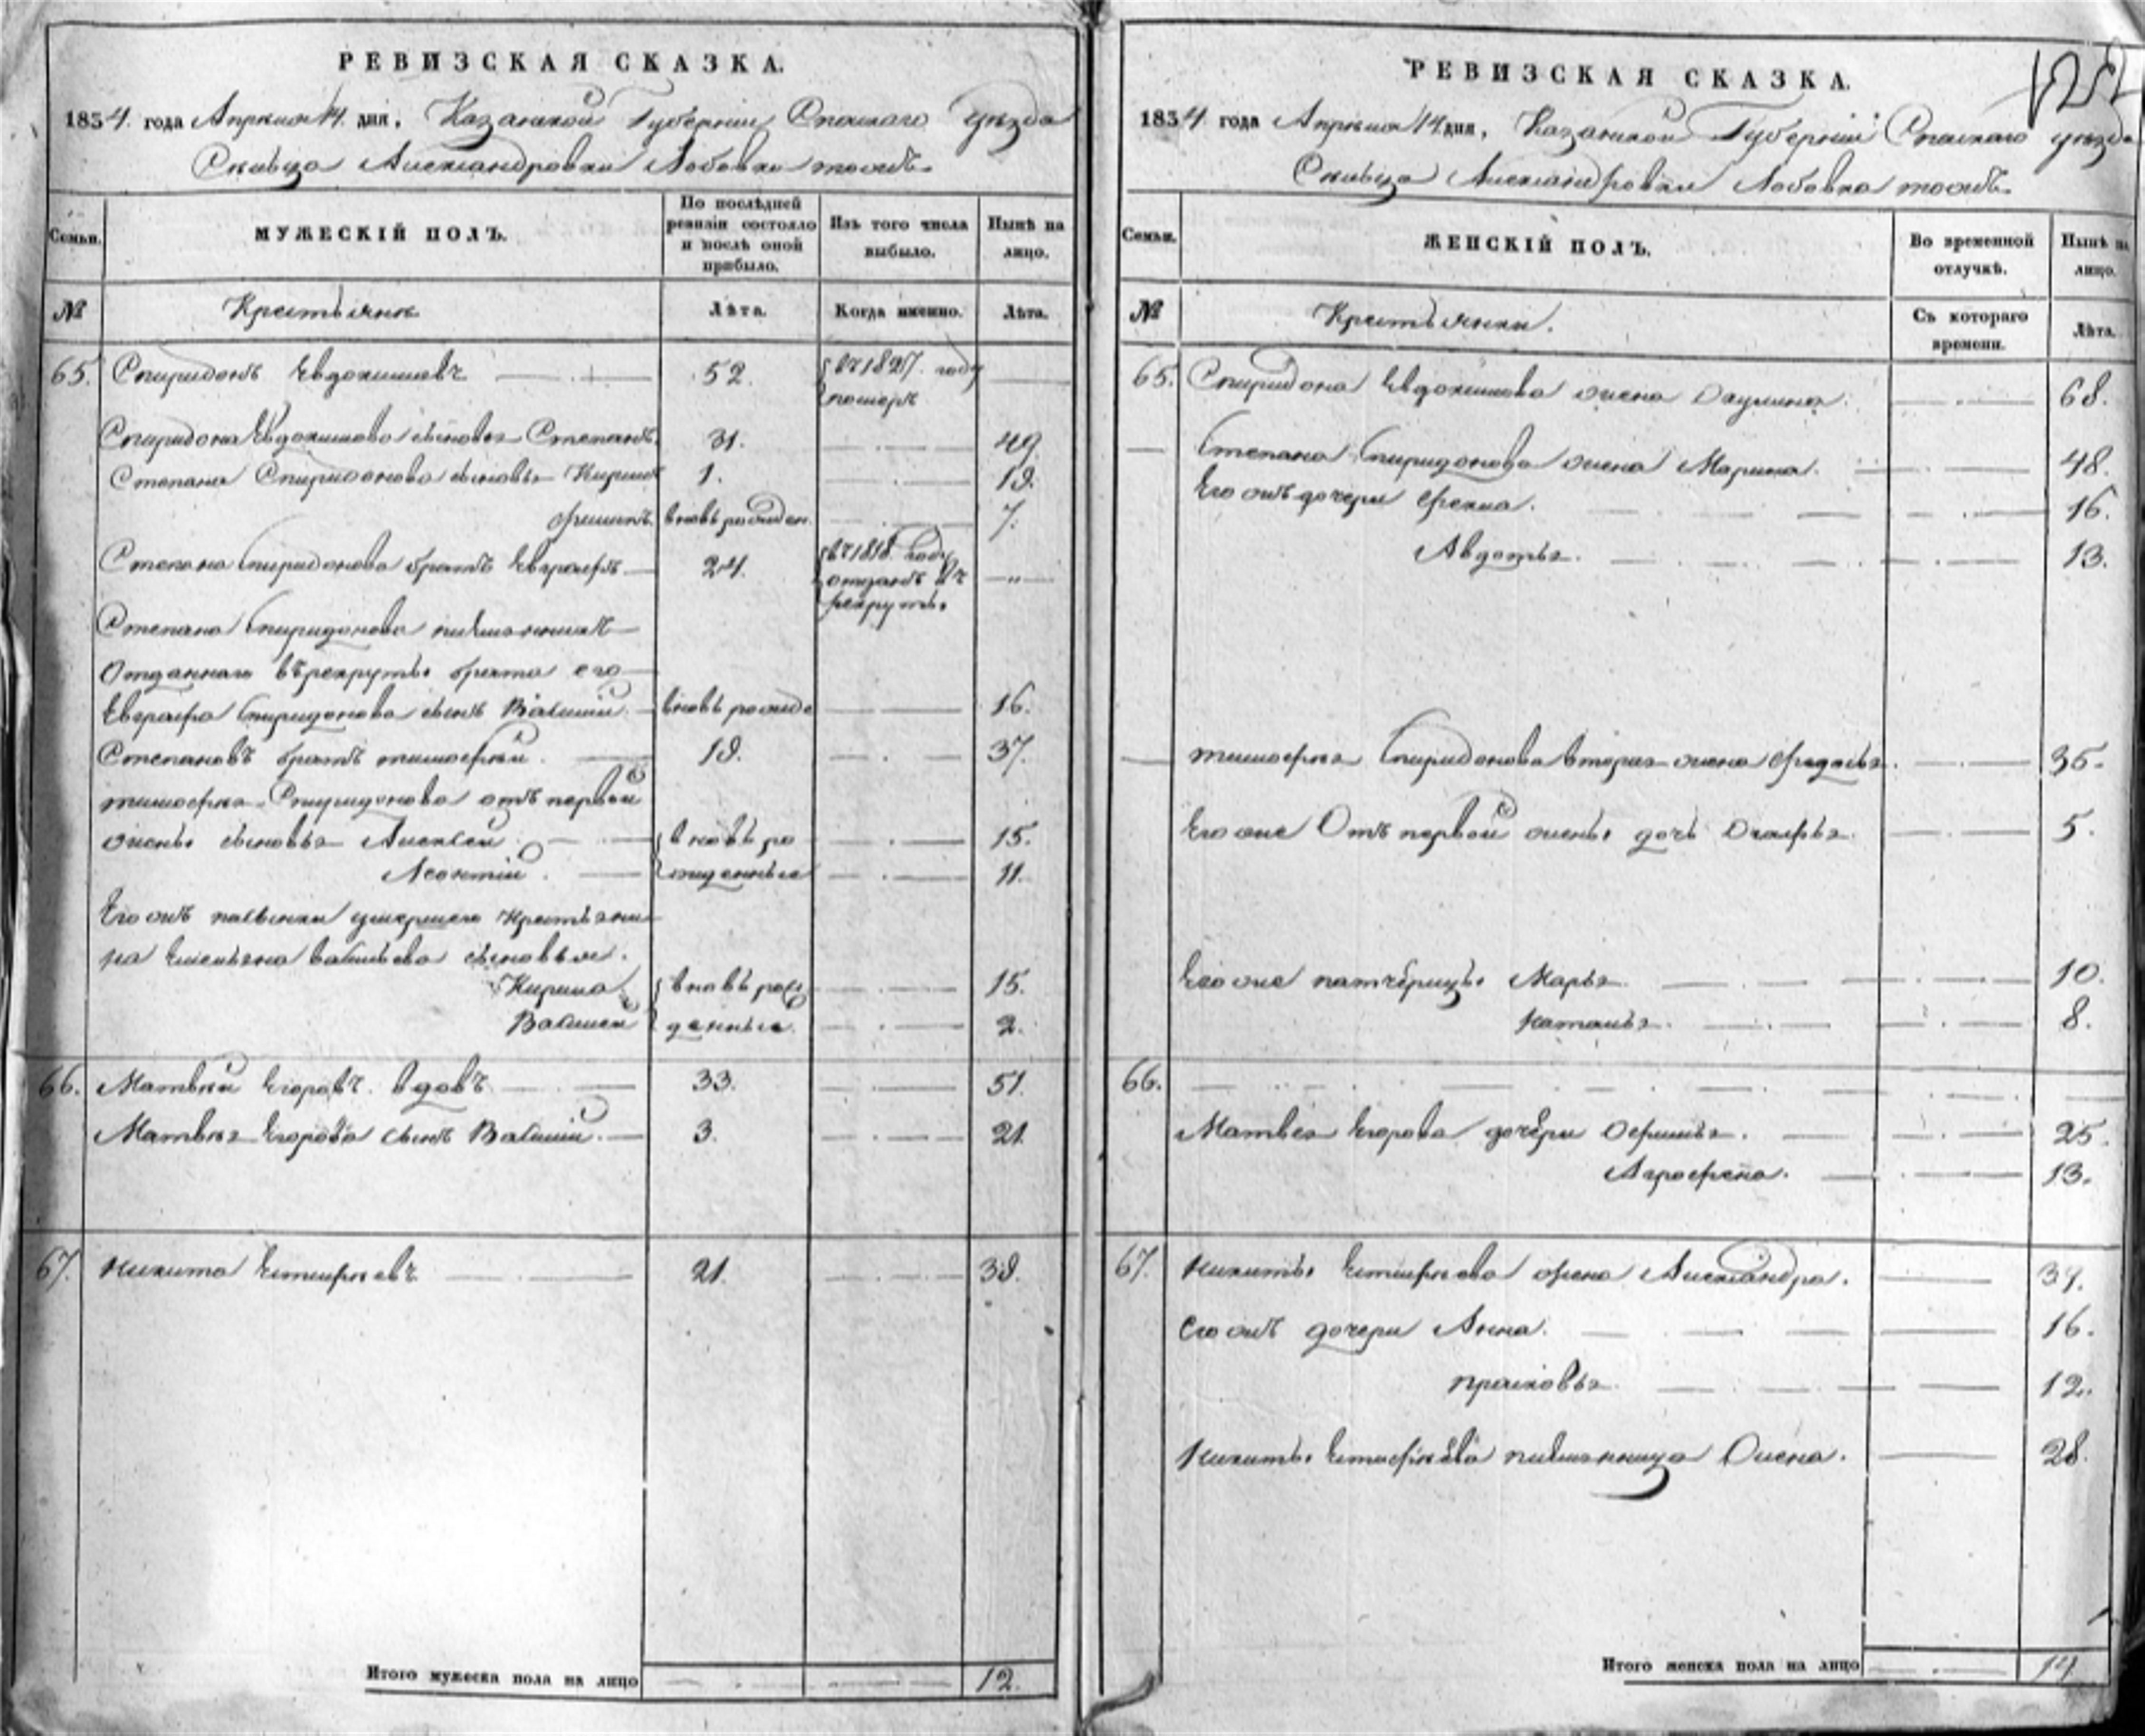 РЕВИЗСКАЯ СКАЗКА.
1834. года Апреля 14. дня, Казанской Губернии Спаскаго уезда
Сельца Александровки Лобовка тожъ
Семьи.
МУЖЕСКІЙ ПОЛЪ.
По послѣдней ревизіи состояло и послѣ оной прибыло.
Изъ того числа выбыло.
Нынѣ на лицо.
№
Крестьяне
Лѣта.
Когда именно.
Лѣта.
65. Спиридонъ Евдокимовъ 52. въ 1827. году
померъ
Спиридона Евдокимова сыновья Степанъ. 31. 49.
Степана Спиридонова сыновья Кирила 1. 19.
вновь рожден. 7.
Степана Спиридонова братъ Евграфъ 24. въ 1818. году
отданъ въ
рекруты
Степана Спиридонова племянникъ
Отданнаго въ рекруты брата его
Евграфа Спиридонова сынъ Василій вновь рожде 16.
Степановъ братъ тимофей. 19. 37.
тимофея Спиридонова отъ первой
жены сыновья Алексей вновь ро 15.
Леонтій. жденные 11.
Его жъ пасынки умершаго крестьяни
на Емельяна Васильева сыновья.
Кирила вновь рож 15.
Василей денные. 2.
66. Матвей Егоровъ вдовъ 33. 51.
Матвея Егорова сынъ Василій. 3. 21
67. Никита Естифеевъ 21. 39.
Итого мужеска пола на лицо 12.
РЕВИЗСКАЯ СКАЗКА.
1834 года Апреля 14 дня, Казанской Губернии Спаскаго уезда
Сельца Александровки Лобовка тожъ
Семьи.
ЖЕНСКІЙ ПОЛЪ.
Во временной отлучкѣ.
Нынѣ на лицо.
№
Крестьянки.
Съ котораго времени.
Лѣта.
65. Спиридона Евдокимова жена Акулина. 68.
Степана Спиридонова жена Марина. 48.
Его жъ дочери Фекла. 16.
Авдотья. 13.
тимофея Спиридонова вторая жена Федосья. 35.
Его же Отъ первой жены дочь 5.
Его же патчерицы Марья 10.
Наталья. 8.
66.
Матвея Егорова дочери Афимья. 25.
Аграфена. 13.
67. Никиты Естифеева жена Александра. 39.
Его жъ дочери Анна. 16.
прасковья 12.
Никиты Естифеева племянница Олена. 28.
Итого женска пола на лицо 14